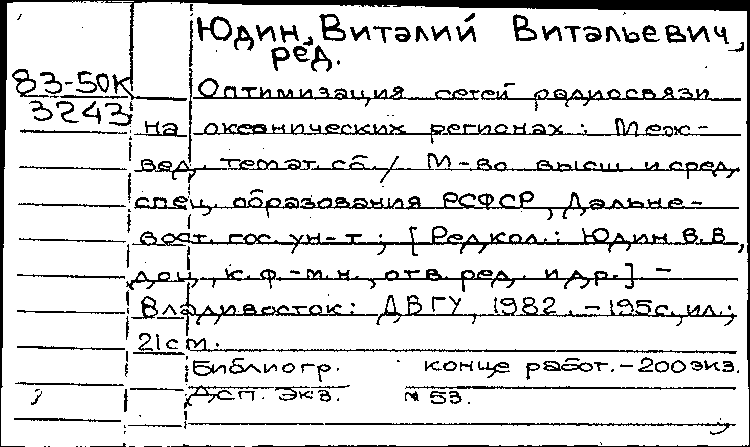 Юдин, Виталий Витальевич,
ред.
83-50К
3243
Оптимизация сетей радиосвязи
на океанических регионах: Меж-
вед. темат. сб. / М-во высш. и сред.
спец. образования РСФСР, Дальне-
вост. гос. ун-т; [Редкол.: Юдин В.В.,
доц., к.ф.-м.н., отв. ред. и др.] -
Владивосток: ДВГУ, 1982. - 195с., ил.;
21см.
Библиогр. конце работ. - 200 экз.
Деп. экз. № 53.